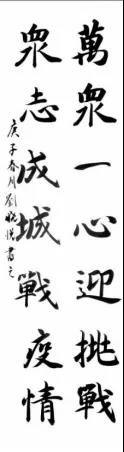 萬眾一心迎挑戰
眾志成城戰疫情
庚子春月劉曉悅書之